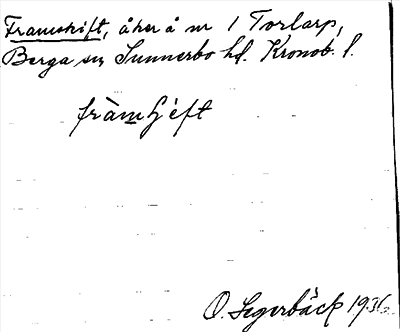 Framskift, åker å nr 1 Torlarp,
Berga sn Sunnerbo hd. Kronob. l.
fràmʃìft
O. Segerbäck 1936